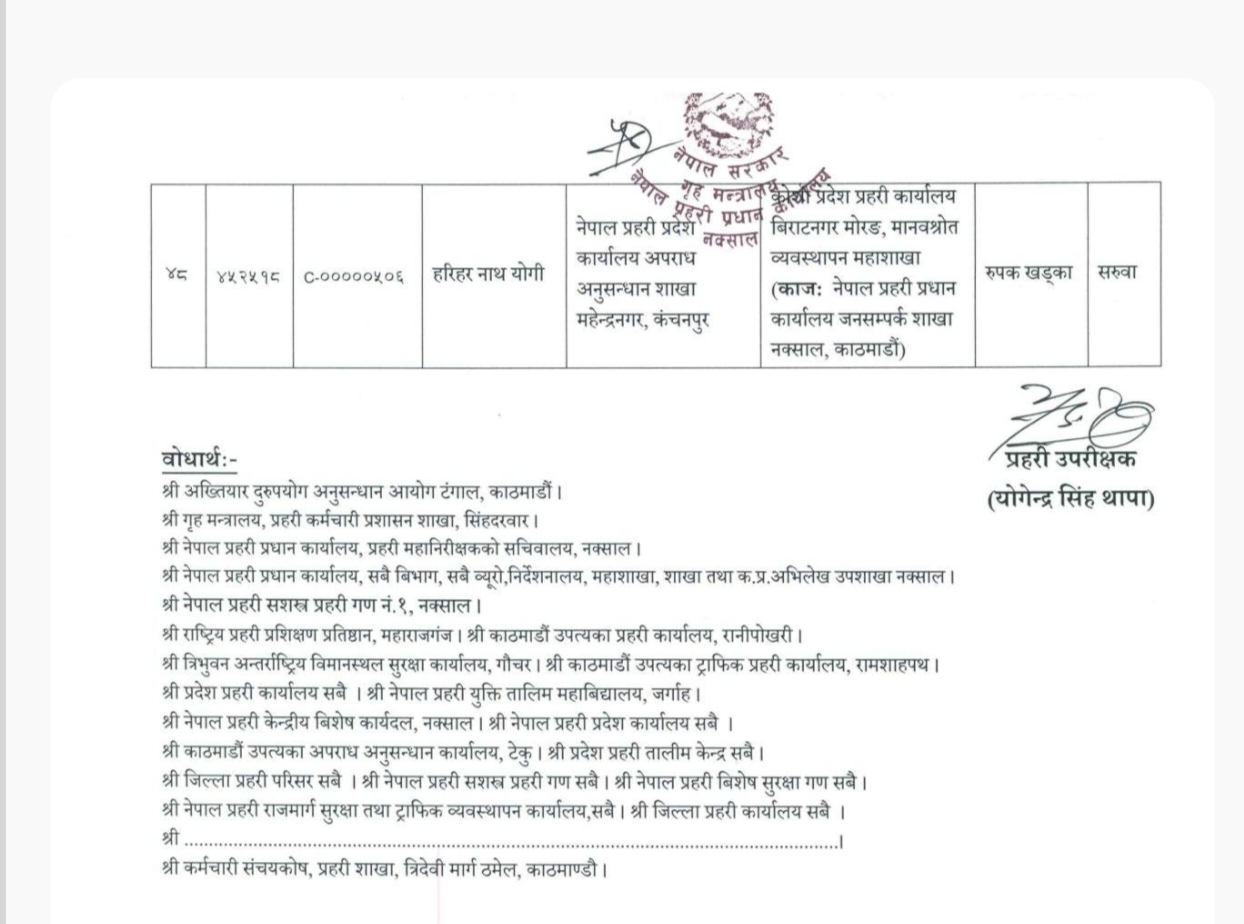 नेपाल सरकार
गृह मन्त्रालय
नेपाल प्रहरी प्रधान कार्यालय
नक्साल
४८
४५२५१८
C-०००००५०६
हरिहर नाथ योगी
नेपाल प्रहरी प्रदेश
कार्यालय अपराध
अनुसन्धान शाखा
महेन्द्रनगर, कंचनपुर
कोशी प्रदेश प्रहरी कार्यालय
बिराटनगर मोरङ, मानवश्रोत
व्यवस्थापन महाशाखा
(काज: नेपाल प्रहरी प्रधान
कार्यालय जनसम्पर्क शाखा
नक्साल, काठमाडौं)
रुपक खड्का
सरुवा
प्रहरी उपरीक्षक
(योगेन्द्र सिंह थापा)
वोधार्थ:-
श्री अख्तियार दुरुपयोग अनुसन्धान आयोग टंगाल, काठमाडौं।
श्री गृह मन्त्रालय, प्रहरी कर्मचारी प्रशासन शाखा, सिंहदरवार।
श्री नेपाल प्रहरी प्रधान कार्यालय, प्रहरी महानिरीक्षकको सचिवालय, नक्साल।
श्री नेपाल प्रहरी प्रधान कार्यालय, सबै बिभाग, सबै व्यूरो,निर्देशनालय, महाशाखा, शाखा तथा क.प्र.अभिलेख उपशाखा नक्साल।
श्री नेपाल प्रहरी सशस्त्र प्रहरी गण नं.१, नक्साल।
श्री राष्ट्रिय प्रहरी प्रशिक्षण प्रतिष्ठान, महाराजगंज। श्री काठमाडौं उपत्यका प्रहरी कार्यालय, रानीपोखरी।
श्री त्रिभुवन अन्तर्राष्ट्रिय विमानस्थल सुरक्षा कार्यालय, गौचर। श्री काठमाडौं उपत्यका ट्राफिक प्रहरी कार्यालय, रामशाहपथ।
श्री प्रदेश प्रहरी कार्यालय सबै । श्री नेपाल प्रहरी युक्ति तालिम महाबिद्यालय, जर्गाह।
श्री नेपाल प्रहरी केन्द्रीय बिशेष कार्यदल, नक्साल। श्री नेपाल प्रहरी प्रदेश कार्यालय सबै ।
श्री काठमाडौं उपत्यका अपराध अनुसन्धान कार्यालय, टेकु। श्री प्रदेश प्रहरी तालीम केन्द्र सबै।
श्री जिल्ला प्रहरी परिसर सबै । श्री नेपाल प्रहरी सशस्त्र प्रहरी गण सबै। श्री नेपाल प्रहरी बिशेष सुरक्षा गण सबै।
श्री नेपाल प्रहरी राजमार्ग सुरक्षा तथा ट्राफिक व्यवस्थापन कार्यालय,सबै। श्री जिल्ला प्रहरी कार्यालय सबै ।
श्री ..........................................................................................................।
श्री कर्मचारी संचयकोष, प्रहरी शाखा, त्रिदेवी मार्ग ठमेल, काठमाण्डौ।